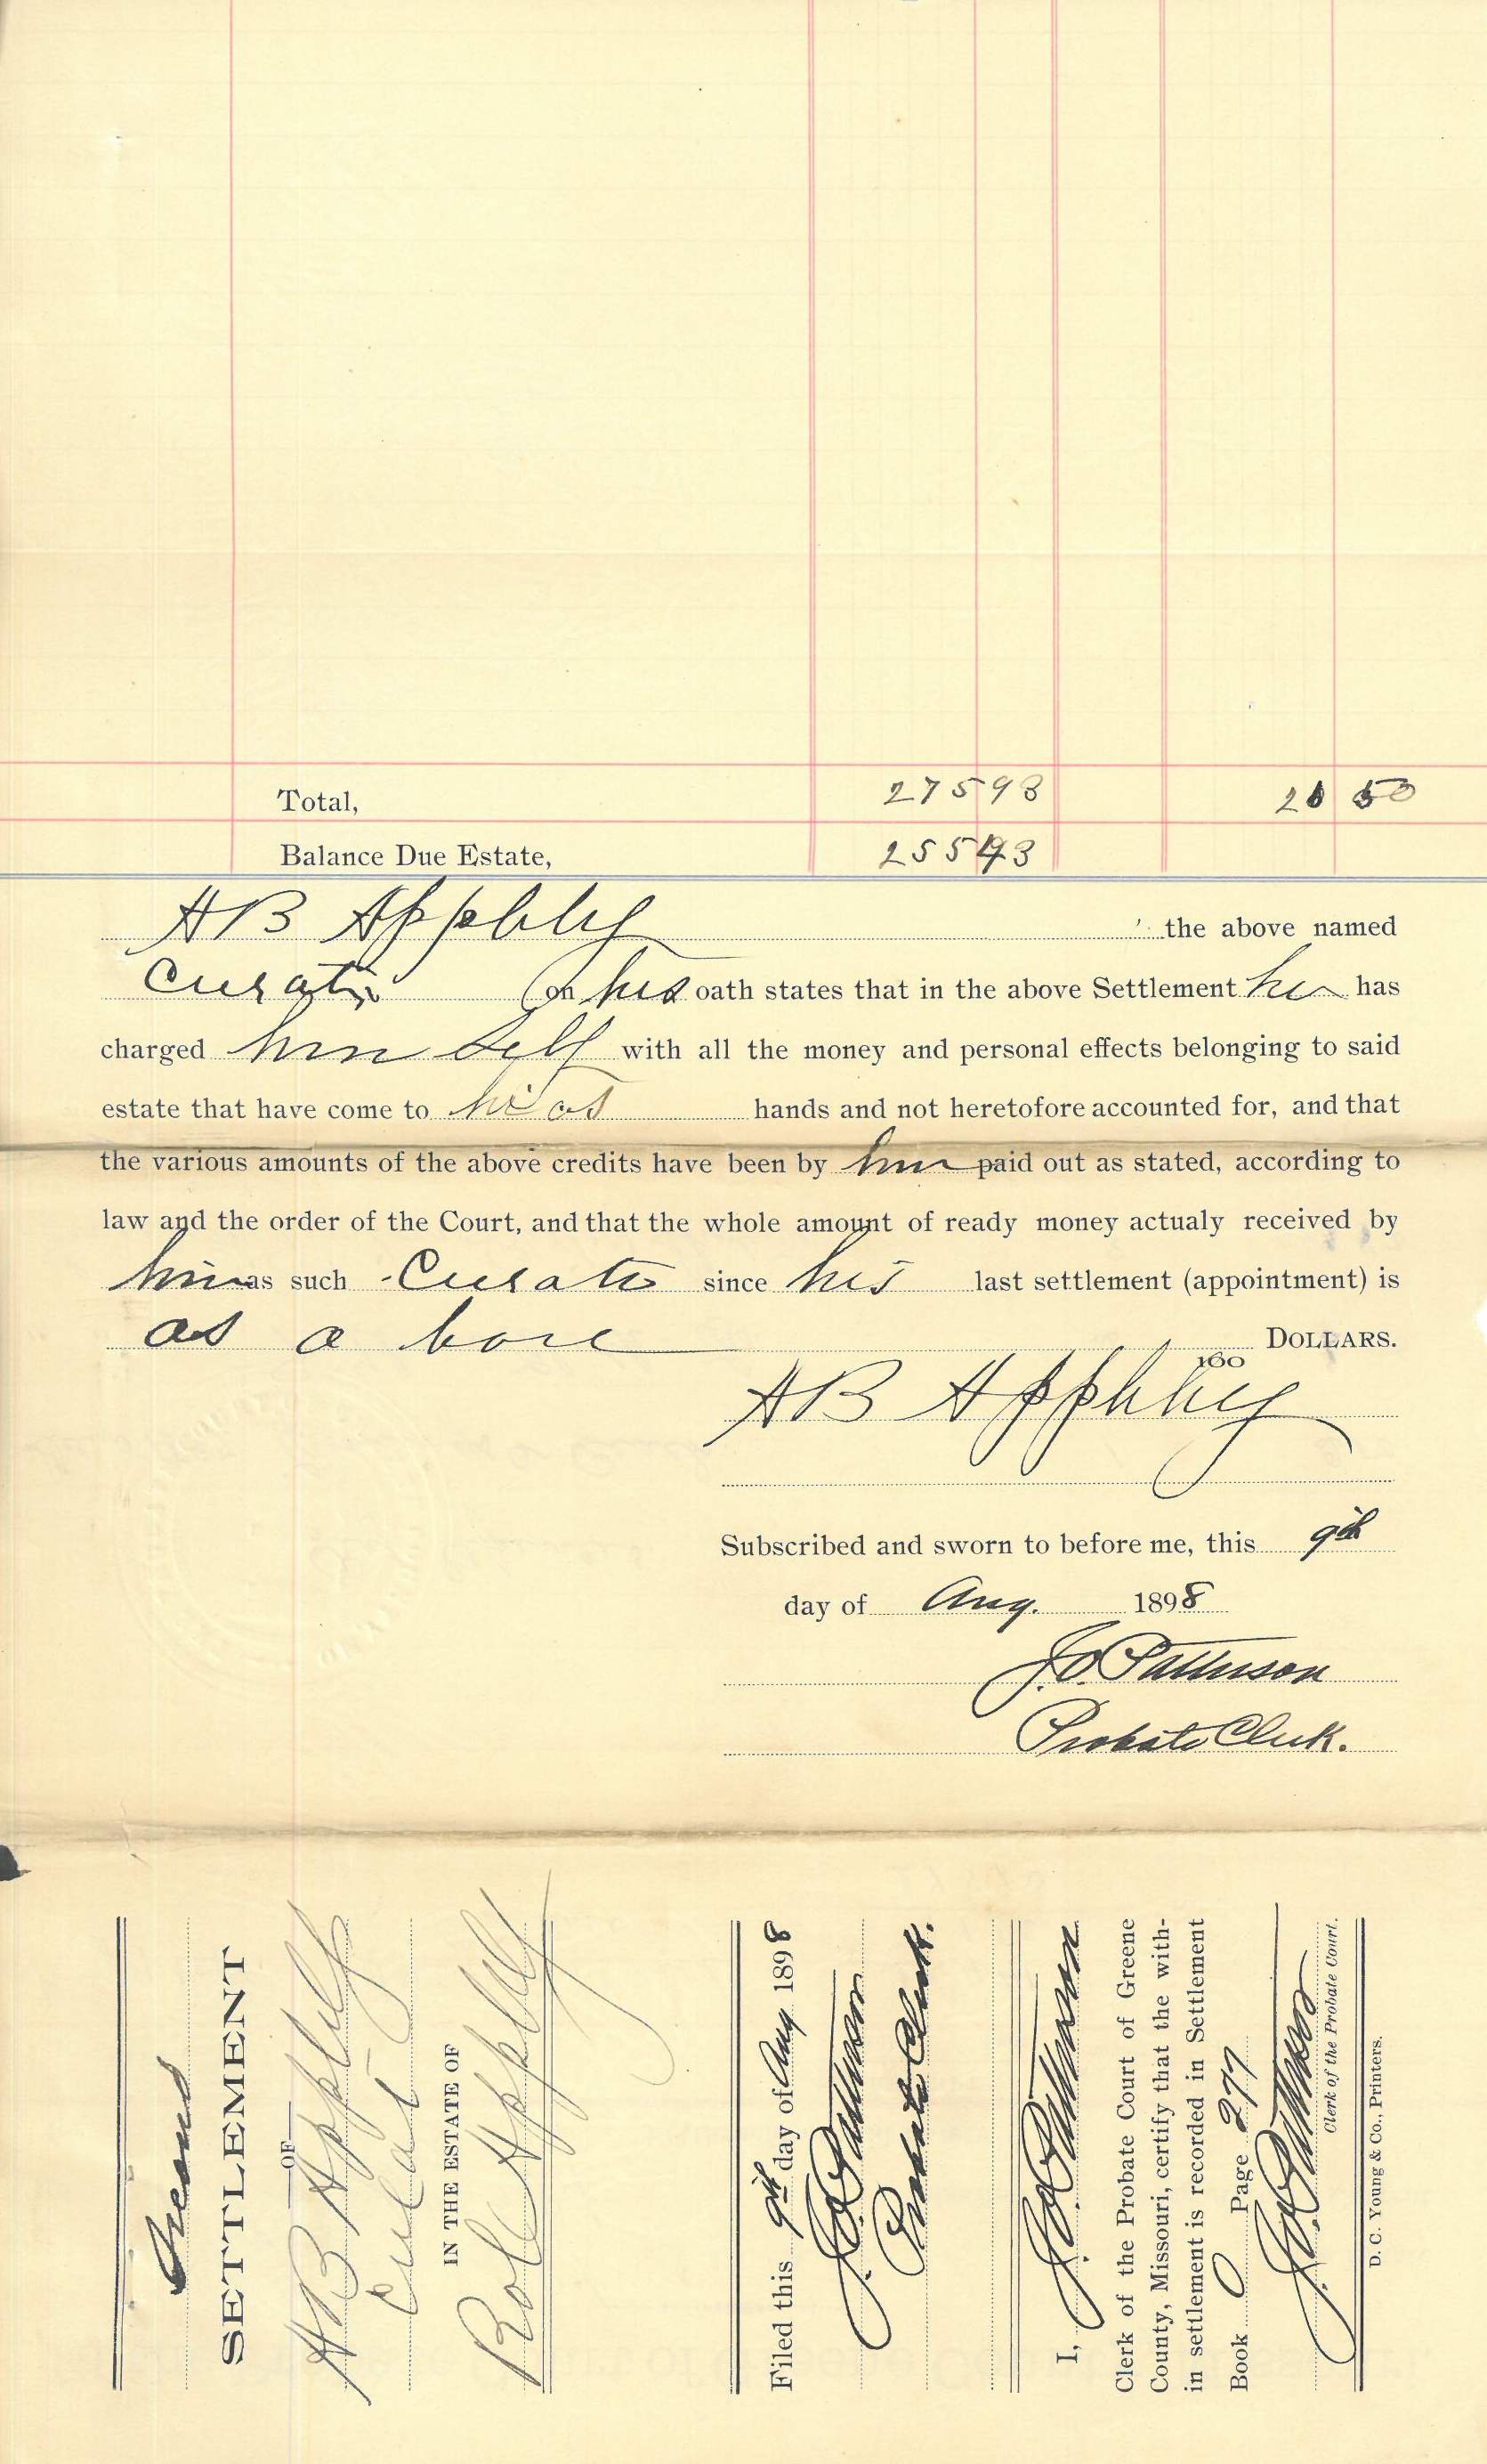 Total, 275 93 20 50
Balance Due Estate, 255 43
A B Appleby the above named
Curator on his oath states that in the above Settlement he has
charged him self with all the money and personal effects belonging to said
estate that have come to his hands and not heretofore accounted for, and that
the various amounts of the above credits have been by him paid out as stated, according to
law and the order of the Court, and that the whole amount of ready money actualy received by
him as such Curator since his last settlement (appointment) is
as above DOLLARS.
100
A B Appleby
Subscribed and sworn to before me, this 9th
day of Aug. 1898
J.O. Patterson
Probate Clerk.
Second
SETTLEMENT
OF
A B Appleby
Curator
IN THE ESTATE OF
Robt Appleby
Filed this 9th day of Aug 1898
J.O. Patterson
Probate Clerk.
I, J.O. Patterson
Clerk of the Probate Court of Greene
County, Missouri, certify that the with-
in settlement is recorded in Settlement
Book O Page 277
J.O. Patterson
Clerk of the Probate Court.
D. C. Young & Co., Printers.